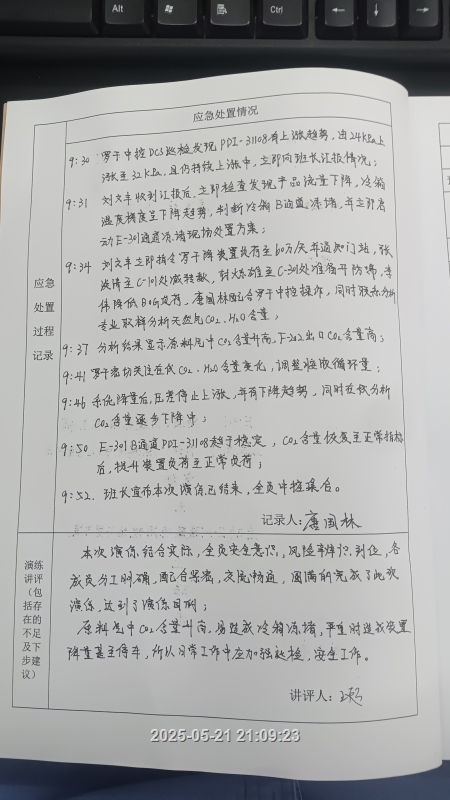 Alt
Ctrl
应急处置情况
应急
处置
过程
记录
9:30 罗子中控DCS巡检发现PDI-31108有上涨趋势，由24KPa上
涨至32KPa，且仍持续上涨中，立即向班长汇报情况；
9:31 刘文丰收到汇报后，立即检查发现产品流量下降，冷箱
温度梯度呈下降趋势，判断冷箱B通道冻堵，并立即启
动E-301通道冻堵现场处置方案；
9:34 刘文丰立即指令罗子降装置负荷至60万/天并通知门站，张
至C-101处减转数，封 雄至C-301处准备开防喘，整
体降低BOG负荷，唐国林配合罗子中控操作，同时联系分析
专业取样分析天然气CO2、H2O含量；
9:37 分析结果显示原料气中CO2含量升高，F-202出口CO2含量高；
9:41 罗子密切关注在线CO2、H2O含量变化，调整 循环量；
9:46 系统降量后，压差停止上涨，并有下降趋势，同时在线分析
CO2含量逐步下降中；
9:50 E-301B通道PDI-31108趋于稳定，CO2含量恢复至正常指标
后，提升装置负荷至正常负荷；
9:52. 班长宣布本次演练已结束，全员中控集合。
记录人：唐国林
演练
讲评
（包
括存
在的
不足
及下
步建
议）
本次演练结合实际，全员安全意识，风险辨识到位，各
成员分工明确，配合默契，交流畅通，圆满的完成了此次
演练，达到了演练目的；
原料气中CO2含量升高，易造成冷箱冻堵，严重时造成装置
降量甚至停车，所以日常工作中应加强巡检，安全工作。
讲评人：
2025-05-21 21:09:23